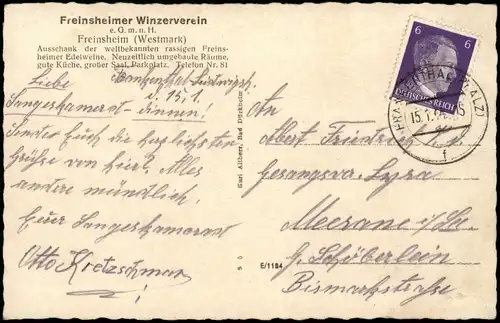 Freinsheimer Winzerverein
e. G. m. u. H.
Freinsheim (Westmark)
Ausschank der weltbekannten rassigen Freins-
heimer Edelweine. Neuzeitlich umgebaute Räume,
gute Küche, großer Saal, Parkplatz. Telefon Nr. 81
Frankenthal-Ludwigsh.
15. 1.
Liebe
Sangeskamerad-innen!
Sendet Euch die herzlichsten
Grüße von hier! Alles
andere mündlich,
Euer Sangeskamerad
Otto Kretzschmar
Karl Allberg, Bad Dürkheim
S 0
E/1184
6 6
DEUTSCHES REICH
FRANKENTHAL (PFALZ)
15.1.
f
An
Albert Friedrich
Gesangverein Lyra
Meerane i/Sa.
Schöberlein
Bismarckstraße